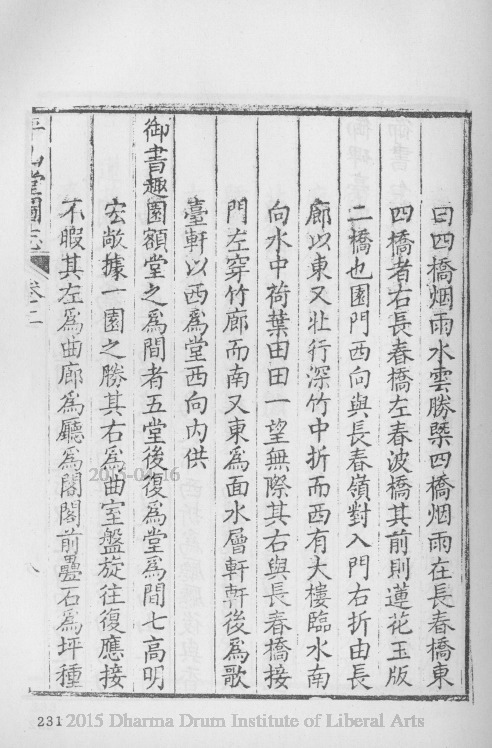 曰四橋烟雨水雲勝槩四橋烟雨在長春橋東
四橋者右長春橋左春波橋其前則蓮花玉版
二橋也園門西向與長春嶺對入門右折由長
廊以東又壯行深竹中折而西有大樓臨水南
向水中荷葉田田一望無際其右與長春橋接
門左穿竹廊而南又東爲面水層軒軒後爲歌
臺軒以西爲堂西向内供
御書趣園額堂之爲間者五堂後復爲堂爲間七高明
宏敞據一園之勝其右爲曲室盤旋往復應接
不暇其左爲曲廊爲廳爲閣閣前疊石爲坪種
平山堂圖志 卷二 八
231 2015 Dharma Drum Institute of Liberal Arts